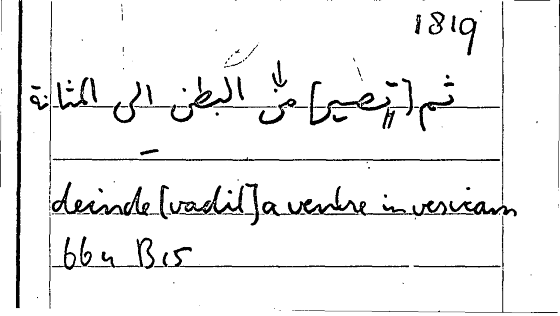 1819
ثم [تصير] من البطن الى المثانة
deinde [vadit] a ventre in vesicam
66u B15